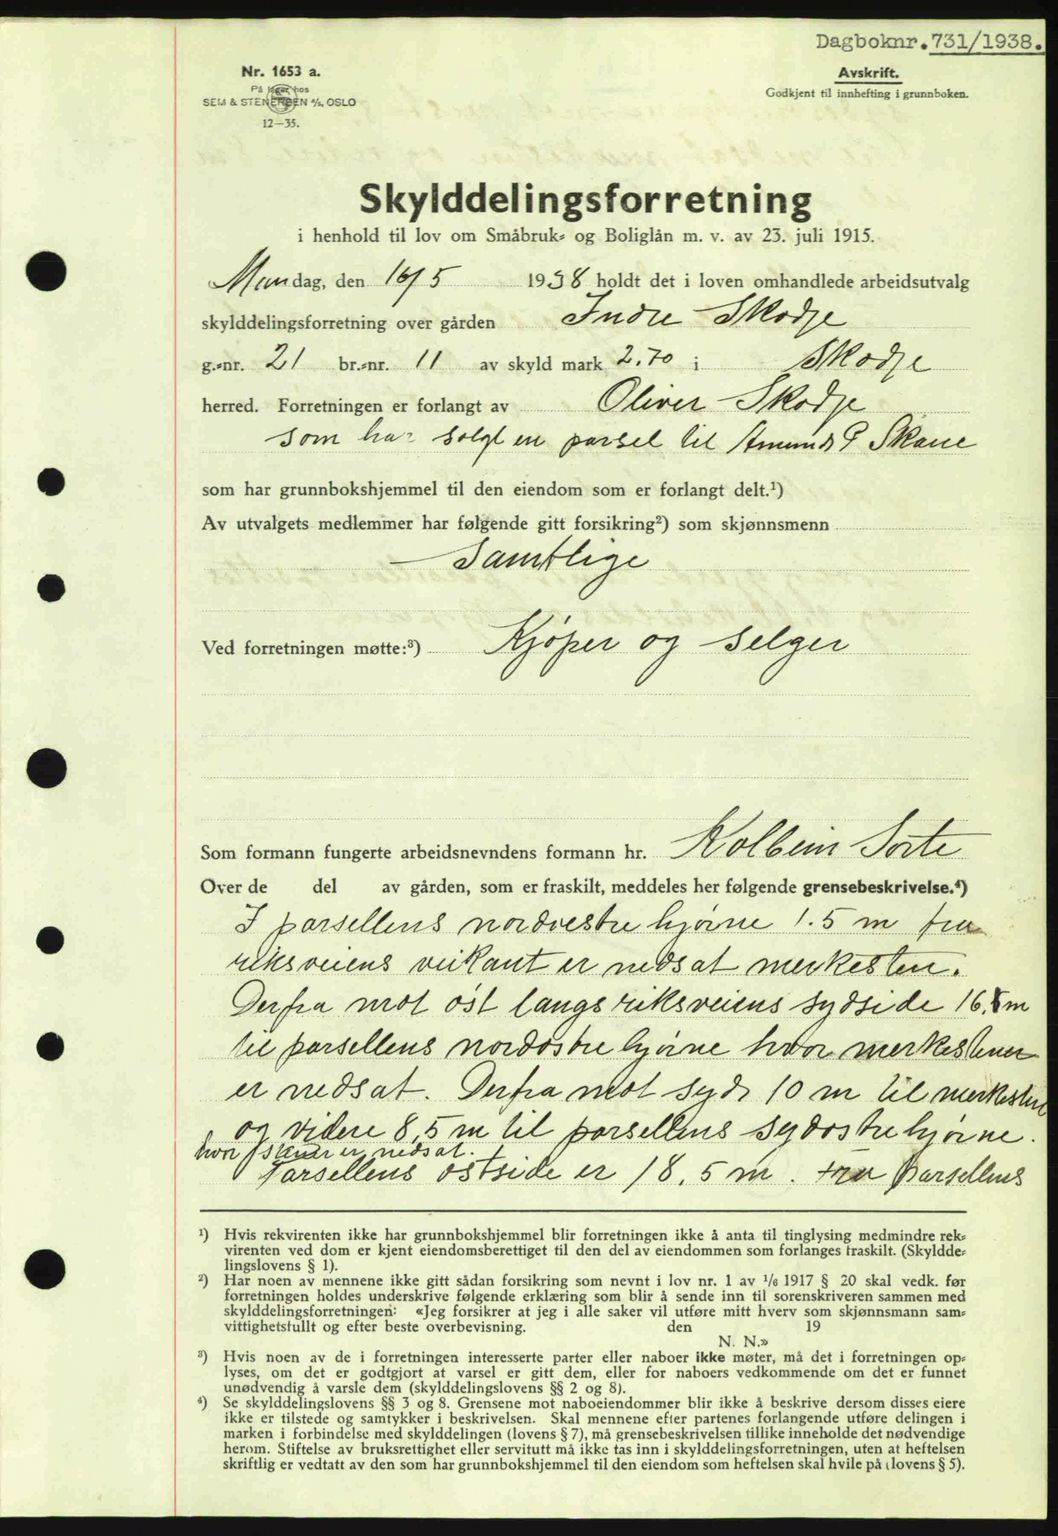 Dagboknr. 731/1938.
Nr. 1653 a.
På lager hos
SEM & STENERSEN A/S, OSLO
12—35.
Avskrift.
Godkjent til innhefting i grunnboken.
Skylddelingsforretning
i henhold til lov om Småbruk- og Boliglån m. v. av 23. juli 1915.
Mandag, den 16/5 1938 holdt det i loven omhandlede arbeidsutvalg
skylddelingsforretning over gården Indre Skodje
g.-nr. 21 br.-nr. 11 av skyld mark 2.70 i Skodje
herred. Forretningen er forlangt av Oliver Skodje
som har solgt en parsel til Amund P Skare
som har grunnbokshjemmel til den eiendom som er forlangt delt.¹)
Av utvalgets medlemmer har følgende gitt forsikring²) som skjønnsmenn
Samtlige
Ved forretningen møtte:³) Kjøper og selger
Som formann fungerte arbeidsnevndens formann hr. Kolbein Sorte
Over de del av gården, som er fraskilt, meddeles her følgende grensebeskrivelse.⁴)
I parsellens nordvestre hjørne 1.5 m fra
riksveiens veikant er nedsat merkesten.
Derfra mot øst langs riksveiens sydside 16,5 m
til parsellens nordøstre hjørne hvor merkestener
er nedsat. Derfra mot syd 10 m til merkesten
og videre 8,5 m til parsellens sydøstre hjørne.
hvor stener er nedsat.
Parsellens østside er 18,5 m. Fra parsellens
¹) Hvis rekvirenten ikke har grunnbokshjemmel blir forretningen ikke å anta til tinglysing medmindre rek-
virenten ved dom er kjent eiendomsberettiget til den del av eiendommen som forlanges fraskilt. (Skyldde-
lingslovens § 1).
²) Har noen av mennene ikke gitt sådan forsikring som nevnt i lov nr. 1 av ¹/₆ 1917 § 20 skal vedk. før
forretningen holdes underskrive følgende erklæring som blir å sende inn til sorenskriveren sammen med
skylddelingsforretningen: «Jeg forsikrer at jeg i alle saker vil utføre mitt hverv som skjønnsmann sam-
vittighetsfullt og efter beste overbevisning. den 19
N. N.»
³) Hvis noen av de i forretningen interesserte parter eller naboer ikke møter, må det i forretningen op-
lyses, om det er godtgjort at varsel er gitt dem, eller for naboers vedkommende om det er funnet
unødvendig å varsle dem (skylddelingslovens §§ 2 og 8).
⁴) Se skylddelingslovens §§ 3 og 8. Grensene mot naboeiendommer blir ikke å beskrive dersom disses eiere
ikke er tilstede og samtykker i beskrivelsen. Skal mennene efter partenes forlangende utføre delingen i
marken i forbindelse med skylddelingen (lovens § 7), må grensebeskrivelsen tillike inneholde det nødvendige
herom. Stiftelse av bruksrettighet eller servitutt må ikke tas inn i skylddelingsforretningen, uten at heftelsen
skriftlig er vedtatt av den som har grunnbokshjemmel til den eiendom som heftelsen skal hvile på (lovens § 5).